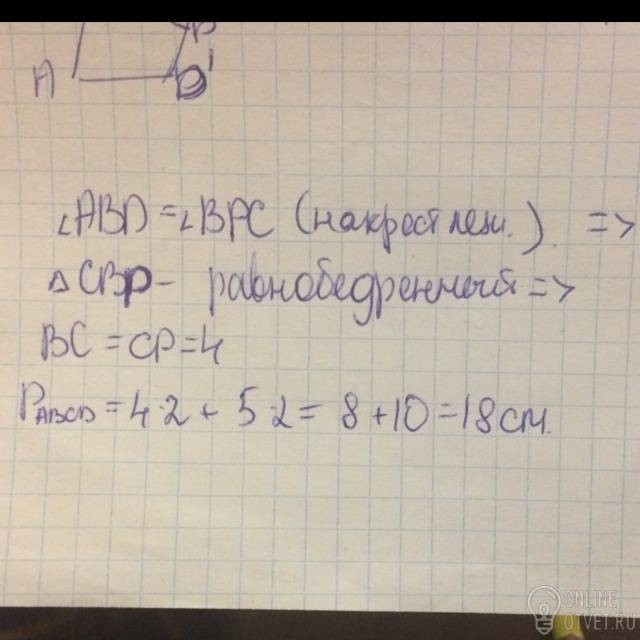 P
A D
∠ABD = ∠BPC (накрест леж.). =>
△CBP - равнобедренный =>
BC = CP = 4
P_ABCD = 4·2 + 5·2 = 8 + 10 = 18 см.
ONLINE
OTVET.RU